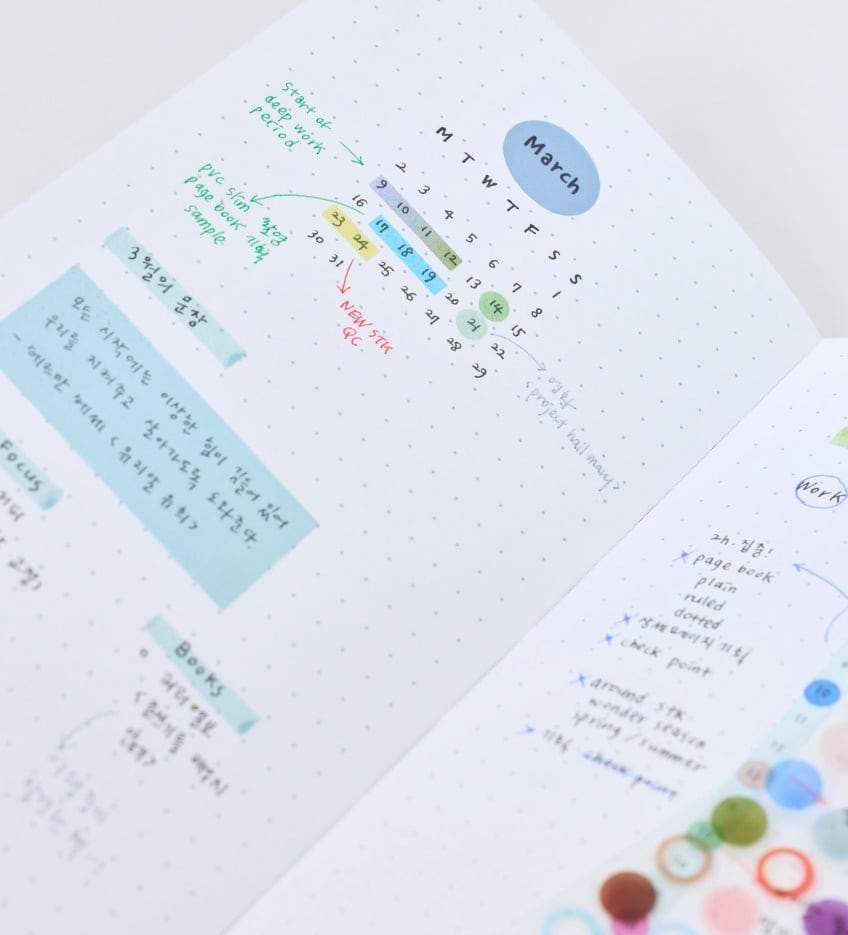 March
M T W T F S S
1
2 3 4 5 6 7 8
9 10 11 12 13 14 15
16 17 18 19 20 21 22
23 24 25 26 27 28 29
30 31
start of
deep work
period
PVC slim
page book 기획
sample 촬영
NEW STK
QC
영화
<project hail mary>
3월의 문장
모든 시작에는 이상한 힘이 깃들어 있어
우리를 지켜주고 살아가도록 도와준다.
- 헤르만 헤세 <유리알 유희>
Focus
Books
커피
Work
2h 집중!
page book
plain
ruled
dotted
상세페이지 기획
check point
around STK
wonder season
spring/summer
기획 check point
10
11
12
13